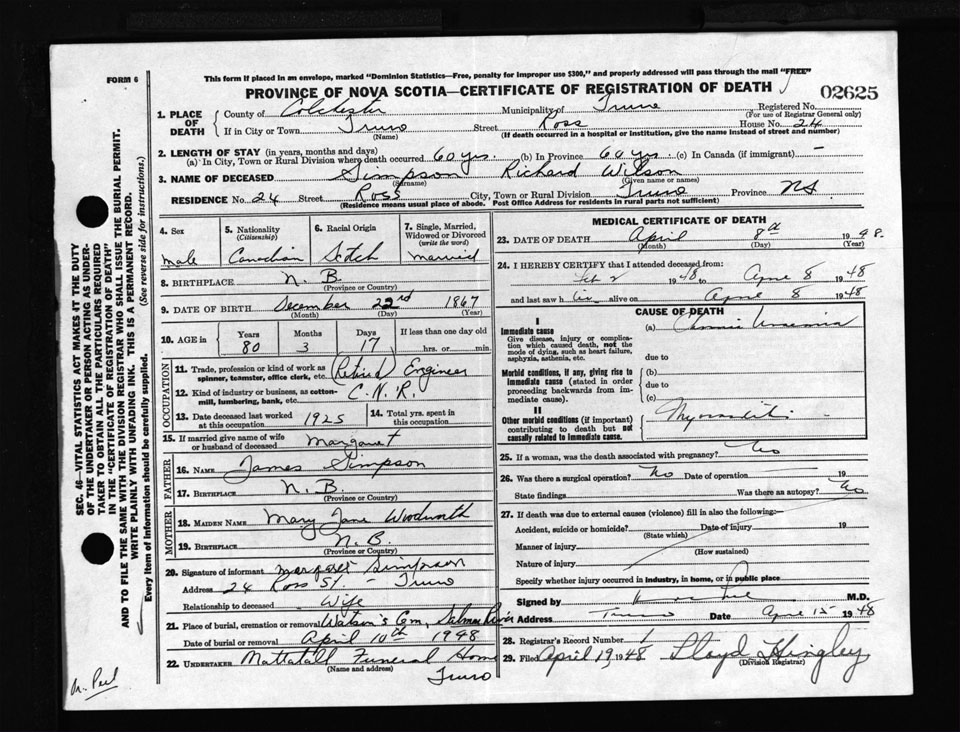 FORM 6
This form if placed in an envelope, marked "Dominion Statistics—Free, penalty for improper use $300," and properly addressed will pass through the mail "FREE"
PROVINCE OF NOVA SCOTIA—CERTIFICATE OF REGISTRATION OF DEATH
02625
1. PLACE OF DEATH
County of Colchester Municipality of Truro Registered No.
(For use of Registrar General only)
If in City or Town Truro Street Ross House No. 24
(Name) (If death occurred in a hospital or institution, give the name instead of street and number)
2. LENGTH OF STAY (in years, months and days)
(a) In City, Town or Rural Division where death occurred 60 yrs. (b) In Province 60 yrs. (c) In Canada (if immigrant) —
3. NAME OF DECEASED Simpson Richard Wilson
(Surname) (Given name or names)
RESIDENCE No. 24 Street Ross City, Town or Rural Division Truro Province NS
(Residence means usual place of abode. Post Office Address for residents in rural parts not sufficient)
4. Sex
male
5. Nationality (Citizenship)
Canadian
6. Racial Origin
Scotch
7. Single, Married, Widowed or Divorced (write the word)
married
8. BIRTHPLACE N.B.
(Province or Country)
9. DATE OF BIRTH December 22nd 1867
(Month) (Day) (Year)
10. AGE in
Years Months Days If less than one day old
80 3 17 hrs. or min.
OCCUPATION
11. Trade, profession or kind of work as spinner, teamster, office clerk, etc. Retired Engineer
12. Kind of industry or business, as cotton-mill, lumbering, bank, etc. C.N.R.
13. Date deceased last worked at this occupation 1925
14. Total yrs. spent in this occupation
15. If married give name of wife or husband of deceased Margaret
FATHER
16. NAME James Simpson
17. BIRTHPLACE N.B.
(Province or Country)
MOTHER
18. MAIDEN NAME Mary Jane Woodworth
19. BIRTHPLACE N.B.
(Province or Country)
20. Signature of informant Margaret Simpson
Address 24 Ross St. — Truro
Relationship to deceased Wife
21. Place of burial, cremation or removal Watson's Cem, Salmon River
Date of burial or removal April 10th 1948
22. UNDERTAKER Mattatall Funeral Home
(Name and address)
Truro
MEDICAL CERTIFICATE OF DEATH
23. DATE OF DEATH April 8th 1948.
(Month) (Day) (Year)
24. I HEREBY CERTIFY that I attended deceased from:
Feb 2 1948 to April 8 1948
and last saw him alive on April 8 1948
CAUSE OF DEATH
I
Immediate cause
Give disease, injury or complication which caused death, not the mode of dying, such as heart failure, asphyxia, asthenia, etc.
(a) Chronic Uraemia
due to
Morbid conditions, if any, giving rise to immediate cause (stated in order proceeding backwards from immediate cause).
(b)
due to
(c)
II
Other morbid conditions (if important) contributing to death but not causally related to immediate cause.
Myocarditis
25. If a woman, was the death associated with pregnancy? No
26. Was there a surgical operation? No Date of operation 19
State findings Was there an autopsy? No
27. If death was due to external causes (violence) fill in also the following:—
Accident, suicide or homicide? Date of injury 19
(State which)
Manner of injury
(How sustained)
Nature of injury
Specify whether injury occurred in industry, in home, or in public place
Signed by M.D.
Address Truro Date April 15 1948
28. Registrar's Record Number 1
29. Filed April 19 1948 Lloyd Hingley
(Division Registrar)
SEC. 46—VITAL STATISTICS ACT MAKES IT THE DUTY
OF THE UNDERTAKER OR PERSON ACTING AS UNDER-
TAKER TO OBTAIN ALL THE PARTICULARS REQUIRED
IN THE "CERTIFICATE OF REGISTRATION OF DEATH"
AND TO FILE THE SAME WITH THE DIVISION REGISTRAR WHO SHALL ISSUE THE BURIAL PERMIT.
WRITE PLAINLY WITH UNFADING INK. THIS IS A PERMANENT RECORD.
Every item of information should be carefully supplied. (See reverse side for instructions.)